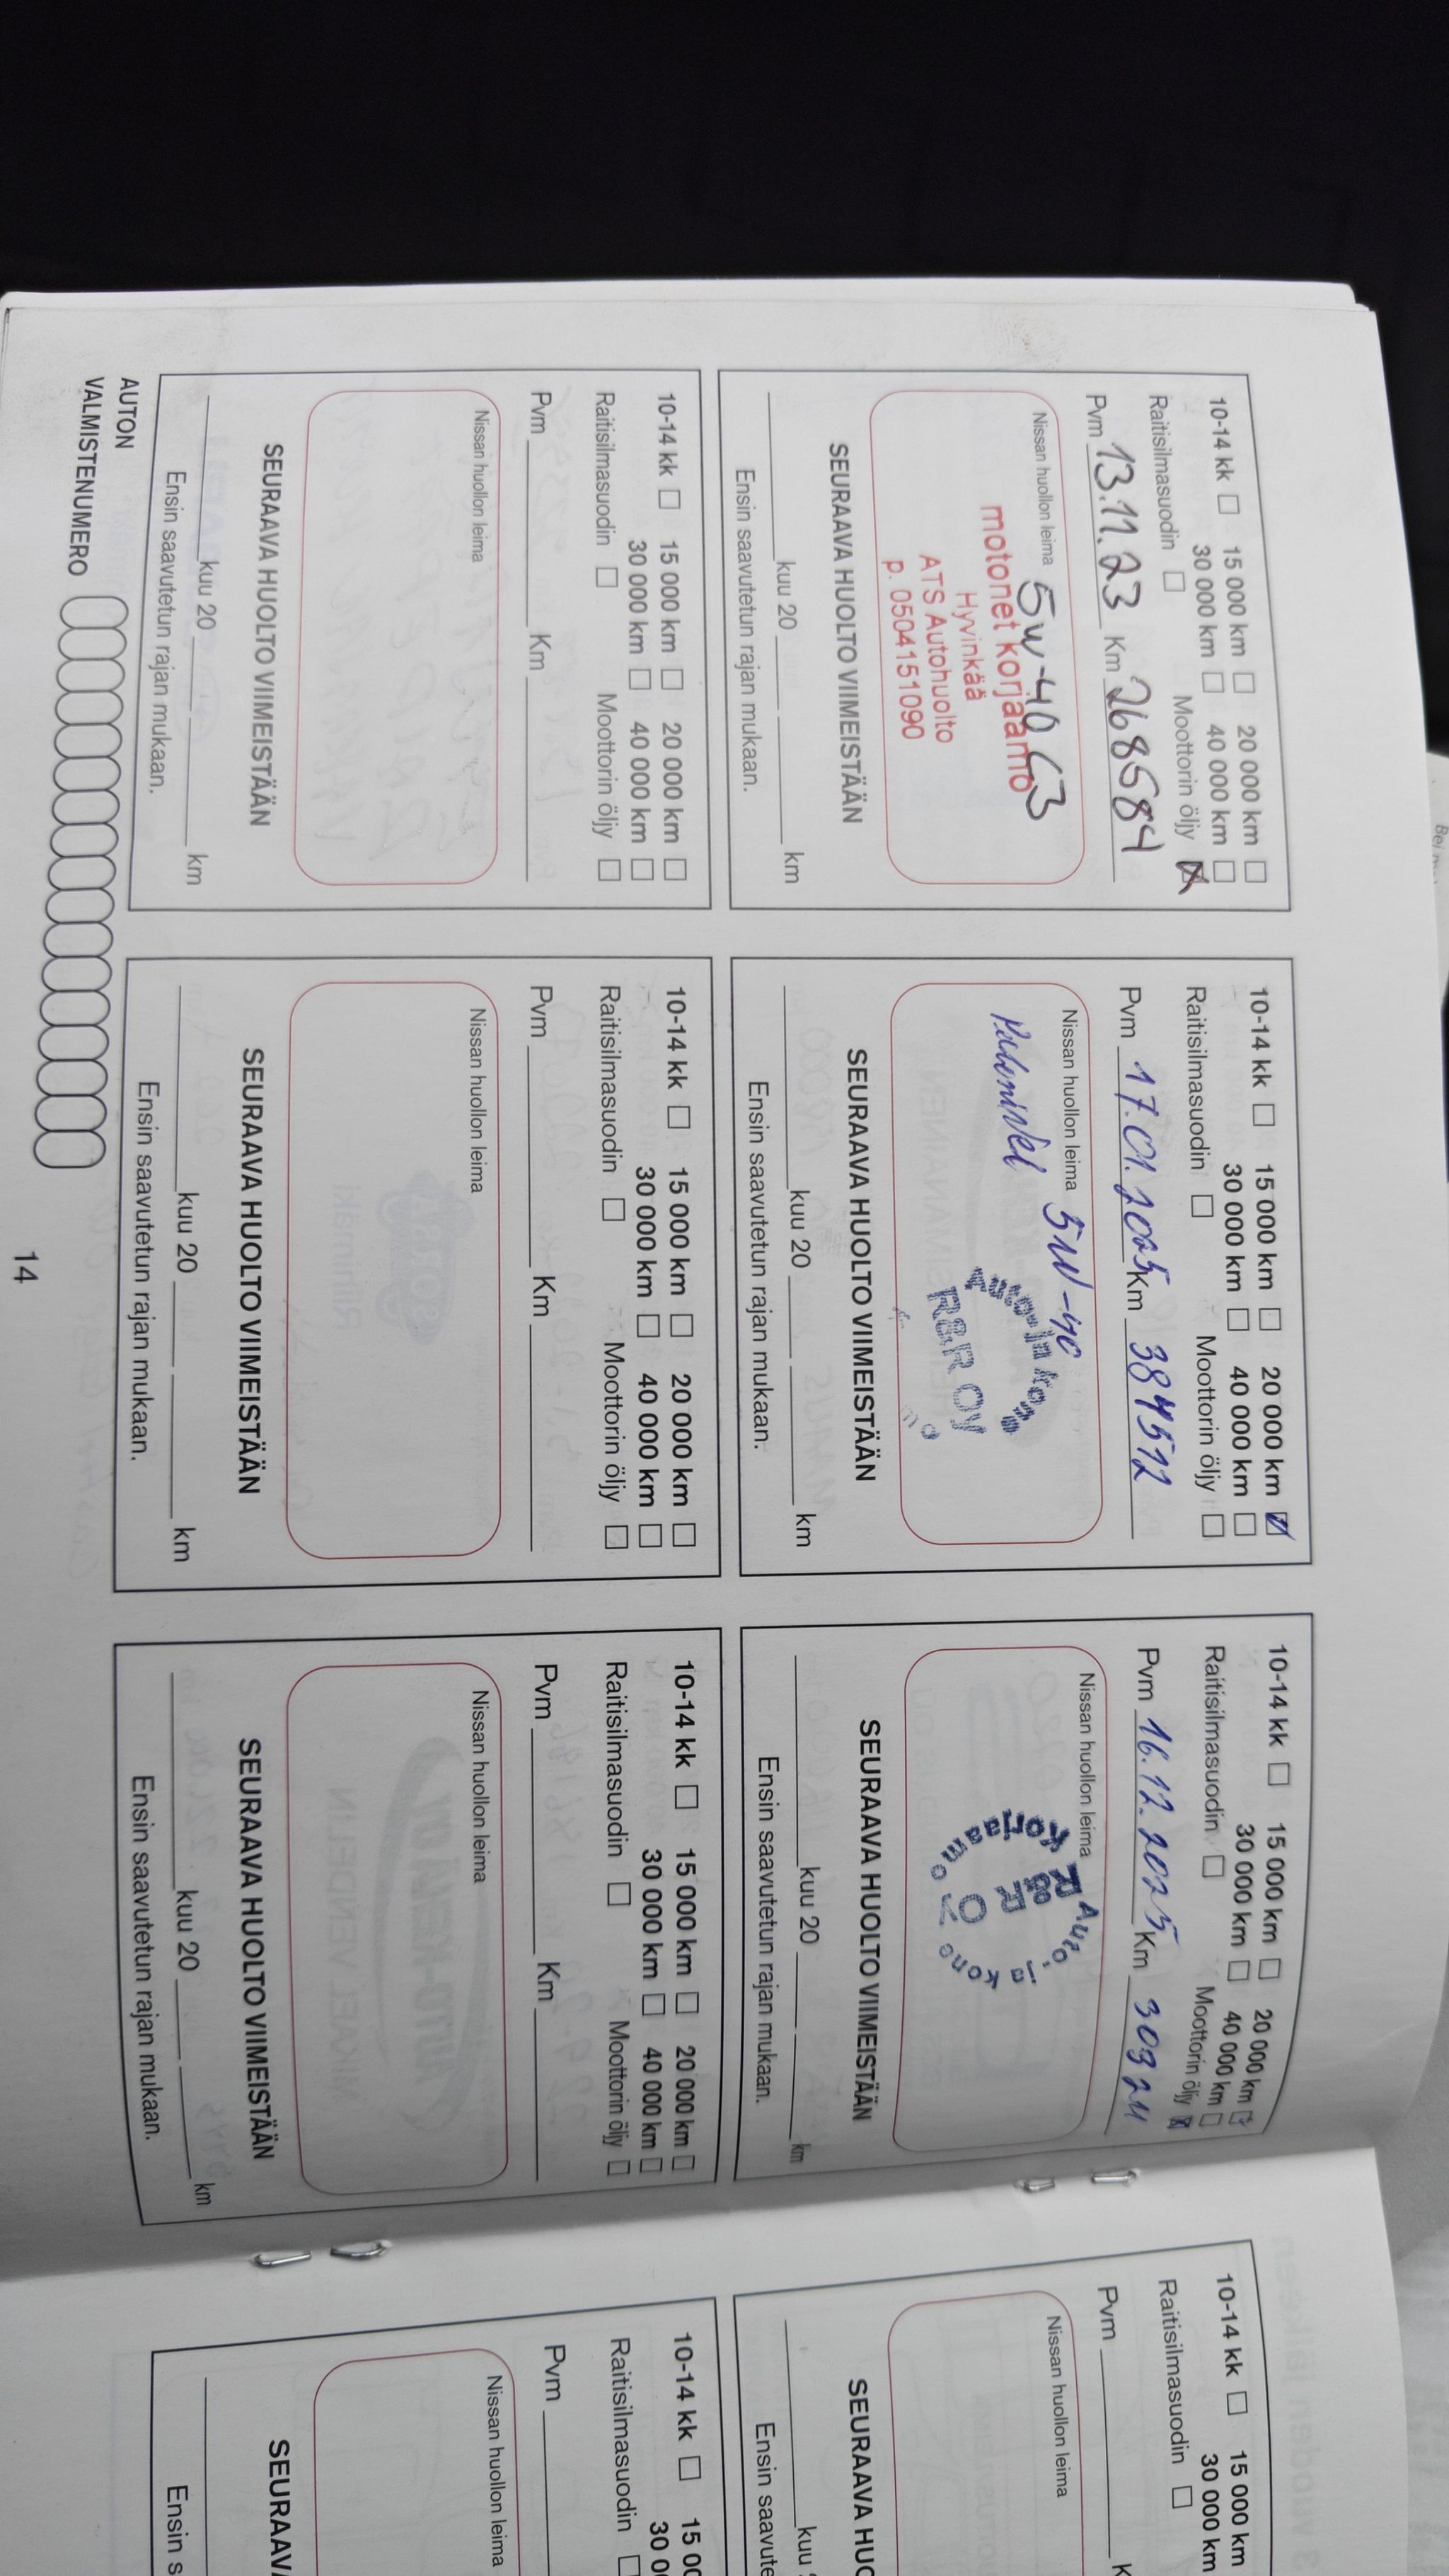 10-14 kk 15 000 km 20 000 km
30 000 km 40 000 km
Raitisilmasuodin Moottorin öljy
Pvm 13.11.23 Km 268584
Nissan huollon leima 5W-40 C3
motonet korjaamo
Hyvinkää
ATS Autohuolto
p. 0504151090
SEURAAVA HUOLTO VIIMEISTÄÄN
kuu 20 km
Ensin saavutetun rajan mukaan.
10-14 kk 15 000 km 20 000 km
30 000 km 40 000 km
Raitisilmasuodin Moottorin öljy
Pvm 17.01.2025 Km 384512
Nissan huollon leima 5W-40
Auto- ja kon
R&R Oy
SEURAAVA HUOLTO VIIMEISTÄÄN
kuu 20 km
Ensin saavutetun rajan mukaan.
10-14 kk 15 000 km 20 000 km
30 000 km 40 000 km
Raitisilmasuodin Moottorin öljy
Pvm 16.12.2025 Km
Nissan huollon leima
Auto- ja kone
R&R
SEURAAVA HUOLTO VIIMEISTÄÄN
kuu 20 km
Ensin saavutetun rajan mukaan.
10-14 kk 15 000 km 20 000 km
30 000 km 40 000 km
Raitisilmasuodin Moottorin öljy
Pvm Km
Nissan huollon leima
SEURAAVA HUOLTO VIIMEISTÄÄN
kuu 20 km
Ensin saavutetun rajan mukaan.
10-14 kk 15 000 km 20 000 km
30 000 km 40 000 km
Raitisilmasuodin Moottorin öljy
Pvm Km
Nissan huollon leima
SEURAAVA HUOLTO VIIMEISTÄÄN
kuu 20 km
Ensin saavutetun rajan mukaan.
10-14 kk 15 000 km 20 000 km
30 000 km 40 000 km
Raitisilmasuodin Moottorin öljy
Pvm Km
Nissan huollon leima
SEURAAVA HUOLTO VIIMEISTÄÄN
kuu 20 km
Ensin saavutetun rajan mukaan.
AUTON
VALMISTENUMERO
14
10-14 kk 15 000 km
30 000 km
Raitisilmasuodin
Pvm K
Nissan huollon leima
SEURAAVA HUO
kuu
Ensin saavute
10-14 kk 15 00
30 0
Raitisilmasuodin
Pvm
Nissan huollon leima
SEURAAV
Ensin s